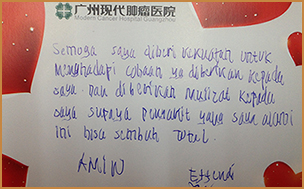 广州现代肿瘤医院
Modern Cancer Hospital Guangzhou
Semoga saya diberi kekuatan untuk
menghadapi cobaan yg diberikan kepada
saya dan diberikan mukizat kepada
saya supaya penyakit yang saya alami
ini bisa sembuh total.
AMIN